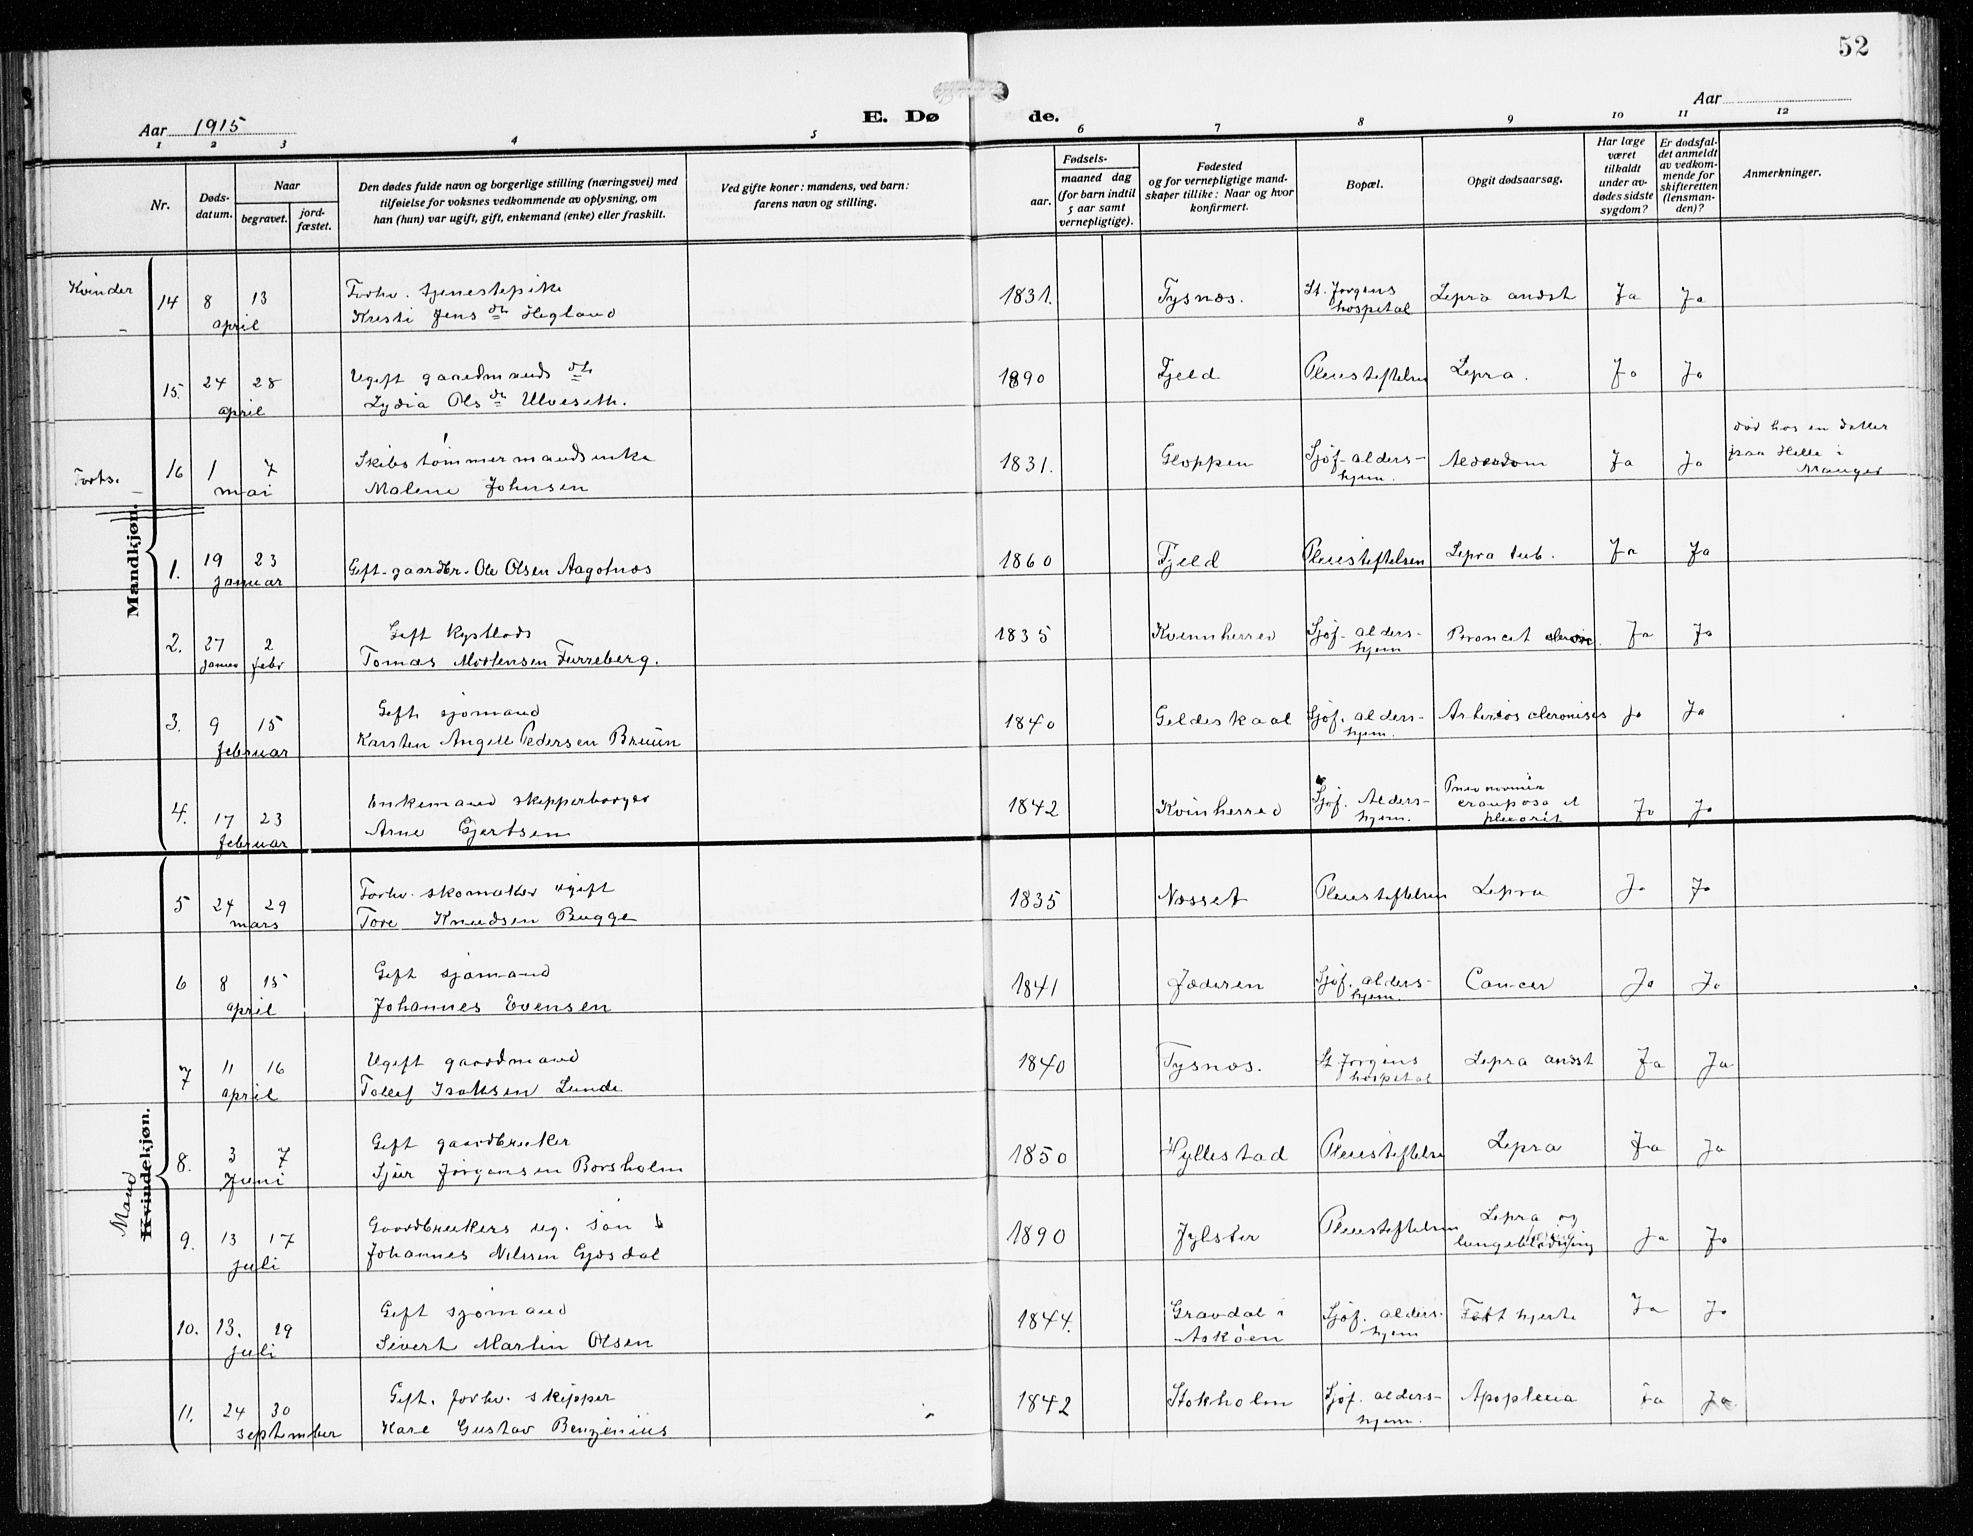 52
Aar 1915
E. Dø de.
Aar
1 2 3 4 5 6 7 8 9 10 11 12
Nr.
Døds-
datum.
Naar
begravet.
jord-
fæstet.
Den dødes fulde navn og borgerlige stilling (næringsvei) med
tilføielse for voksnes vedkommende av oplysning, om
han (hun) var ugift, gift, enkemand (enke) eller fraskilt.
Ved gifte koner: mandens, ved barn:
farens navn og stilling.
Fødsels-
aar.
maaned dag
(for barn indtil
5 aar samt
vernepligtige).
Fødested
og for vernepligtige mand-
skaper tillike: Naar og hvor
konfirmert.
Bopæl.
Opgit dødsaarsag.
Har læge
været
tilkaldt
under av-
dødes sidste
sygdom?
Er dødsfal-
det anmeldt
av vedkom-
mende for
skifteretten
(lensman-
den)?
Anmerkninger.
Kvinder
14 8 13
april
Forhv. tjenestepike
Kristi Jens dtr Hegland
1831. Tysnæs.
St. Jørgens
hospital
Lepra anæst Ja Ja
15. 24 28
april
Ugift gaardmands dtr
Lydia Ols dtr Ulveseth.
1890 Fjeld Pleiestiftelsen Lepra. Ja Ja
Forts.
16 1 7
mai
Skibstømmermandsenke
Malene Johnsen
1831. Gloppen
Sjøf. alders-
hjem.
Alderdom Ja Ja
død hos en datter
paa Helle i
Manger
Mandkjøn.
1. 19 23
januar
Gift gaardbr. Ole Olsen Aagotnæs
1860 Fjeld Pleiestiftelsen Lepra tub. Ja Ja
2. 27 2
januar febr
Gift kystlods
Tomas Mortensen Furreberg.
1835 Kvinnherred
Sjøf. alders-
hjem
Ja Ja
3. 9 15
februar
Gift sjømand
Karsten Angell Pedersen Bruun
1840 Geldeskaal
Sjøf. alders-
hjem.
Ja Ja
4. 17 23
februar
Enkemand skipperborger
Arne Gjertsen
1842 Kvinherred
Sjøf. Alders-
hjem.
crouposa et
pleurit
Ja Ja
5 24 29
mars
Forhv. skomaker ugift
Tore Knudsen Bugge
1835 Næsset Pleiestiftelsen Lepra Ja Ja
6 8 15
april
Gift sjømand
Johannes Evensen
1841 Jæderen
Sjøf. alders-
hjem.
Cancer Ja Ja
7 11 16
april
Ugift gaardmand
Tollef Isaksen Lunde
1840 Tysnæs.
St Jørgens
hospital
Lepra anæst Ja Ja
Mand
Kvindekjøn.
8. 3 7
Juni
Gift gaardbruker
Sjur Jørgensen Borsholm
1850 Hyllestad Pleiestiftelse Lepra Ja Ja
9. 13 17
juli
Gaardbrukers ug. søn
Johannes Nilssen Gjæsdal
1890 Jylster Pleiestiftelsen
Lepra og
lungeblødning
Ja Ja
10. 13. 19
juli
Gift sjømand
Sivert Martin Olsen
1844.
Gravdal i
Askøen
Sjøf. alders-
hjem
Fedt hjerte Ja Ja
11. 24 30
september
Gift. forhv. skipper
Kare Gustav Benzenius
1842 Stokholm
Sjøf. alders-
hjem.
Apoplexia Ja Ja